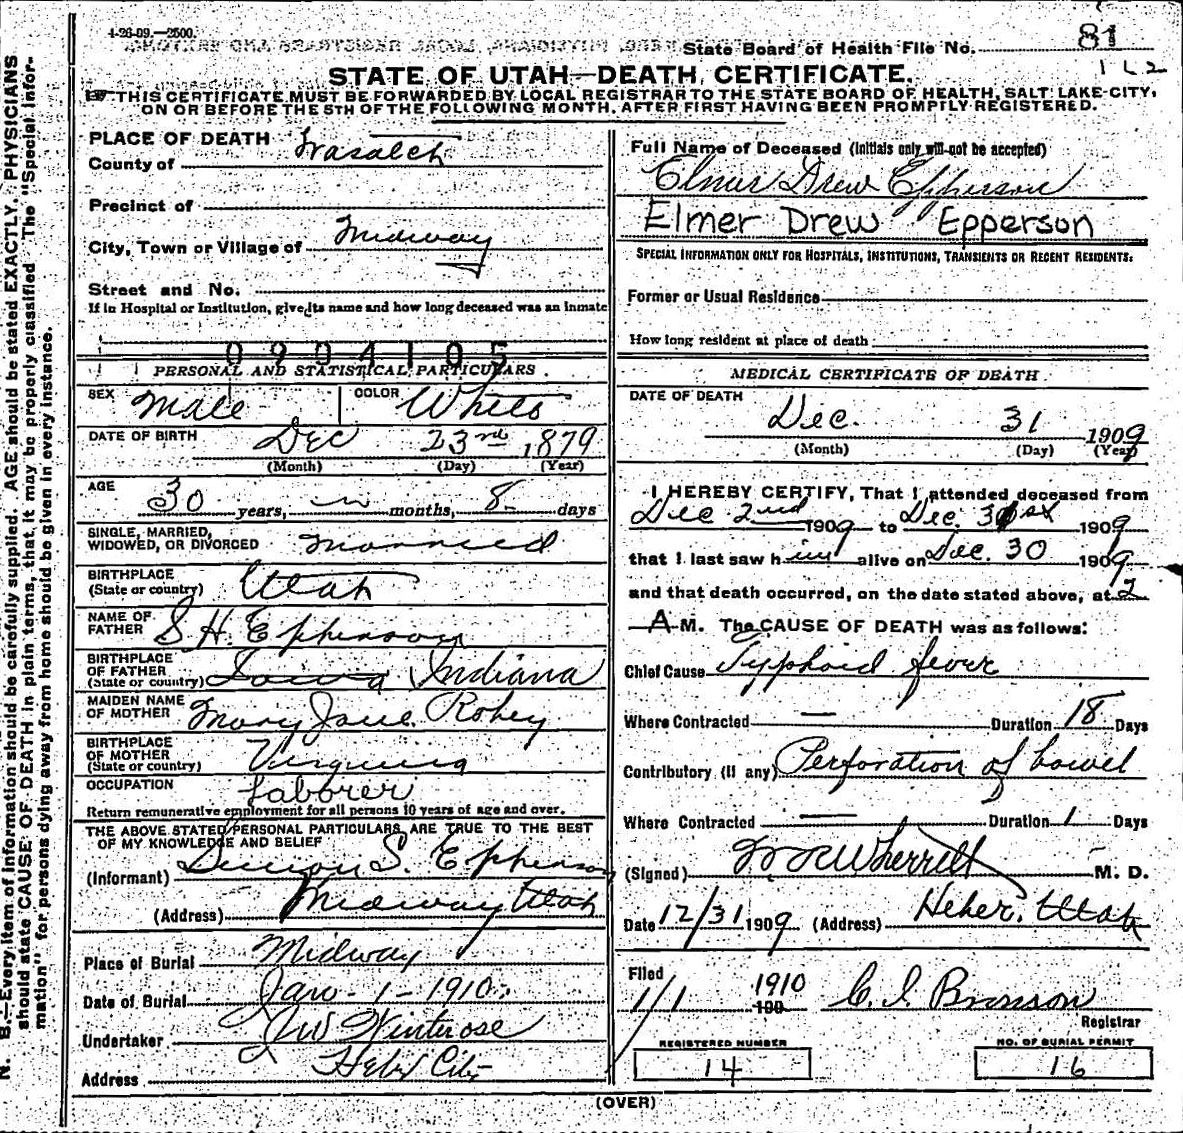 4-26-09.—2500.
State Board of Health File No. 81
STATE OF UTAH—DEATH CERTIFICATE.
THIS CERTIFICATE MUST BE FORWARDED BY LOCAL REGISTRAR TO THE STATE BOARD OF HEALTH, SALT LAKE CITY,
ON OR BEFORE THE 5TH OF THE FOLLOWING MONTH, AFTER FIRST HAVING BEEN PROMPTLY REGISTERED.
N. B.—Every item of information should be carefully supplied. AGE should be stated EXACTLY. PHYSICIANS
should state CAUSE OF DEATH in plain terms, that it may be properly classified. The "Special Infor-
mation" for persons dying away from home should be given in every instance.
PLACE OF DEATH
County of Wasatch
Precinct of
City, Town or Village of Midway
Street and No.
If in Hospital or Institution, give its name and how long deceased was an inmate
0904105
PERSONAL AND STATISTICAL PARTICULARS.
SEX Male COLOR White
DATE OF BIRTH Dec 23rd 1879
(Month) (Day) (Year)
AGE 30 years, months, 8 days
SINGLE, MARRIED,
WIDOWED, OR DIVORCED Married
BIRTHPLACE
(State or country) Utah
NAME OF
FATHER S H. Epperson
BIRTHPLACE
OF FATHER
(State or country) Iowa Indiana
MAIDEN NAME
OF MOTHER Mary Jane Robey
BIRTHPLACE
OF MOTHER
(State or country) Virginia
OCCUPATION Laborer
Return remunerative employment for all persons 10 years of age and over.
THE ABOVE STATED PERSONAL PARTICULARS ARE TRUE TO THE BEST
OF MY KNOWLEDGE AND BELIEF
(Informant) Simon S. Epperson
(Address) Midway Utah
Place of Burial Midway
Date of Burial Jan - 1 - 1910
Undertaker JW Winterose
Address Heber City
Full Name of Deceased (Initials only will not be accepted)
Elmer Drew Epperson
Elmer Drew Epperson
SPECIAL INFORMATION ONLY FOR HOSPITALS, INSTITUTIONS, TRANSIENTS OR RECENT RESIDENTS:
Former or Usual Residence
How long resident at place of death
MEDICAL CERTIFICATE OF DEATH
DATE OF DEATH
Dec. 31 1909
(Month) (Day) (Year)
I HEREBY CERTIFY, That I attended deceased from
Dec 2nd 1909 to Dec. 31st 1909
that I last saw him alive on Dec. 30 1909
and that death occurred, on the date stated above, at 2
A M. The CAUSE OF DEATH was as follows:
Chief Cause Typhoid fever
Where Contracted — Duration 18 Days
Contributory (if any) Perforation of bowel
Where Contracted — Duration 1 Days
(Signed) W R Wherritt M. D.
Date 12/31 1909 (Address) Heber, Utah
Filed
1/1 1910 190 C. I. Bronson
Registrar
REGISTERED NUMBER
14
NO. OF BURIAL PERMIT
16
(OVER)